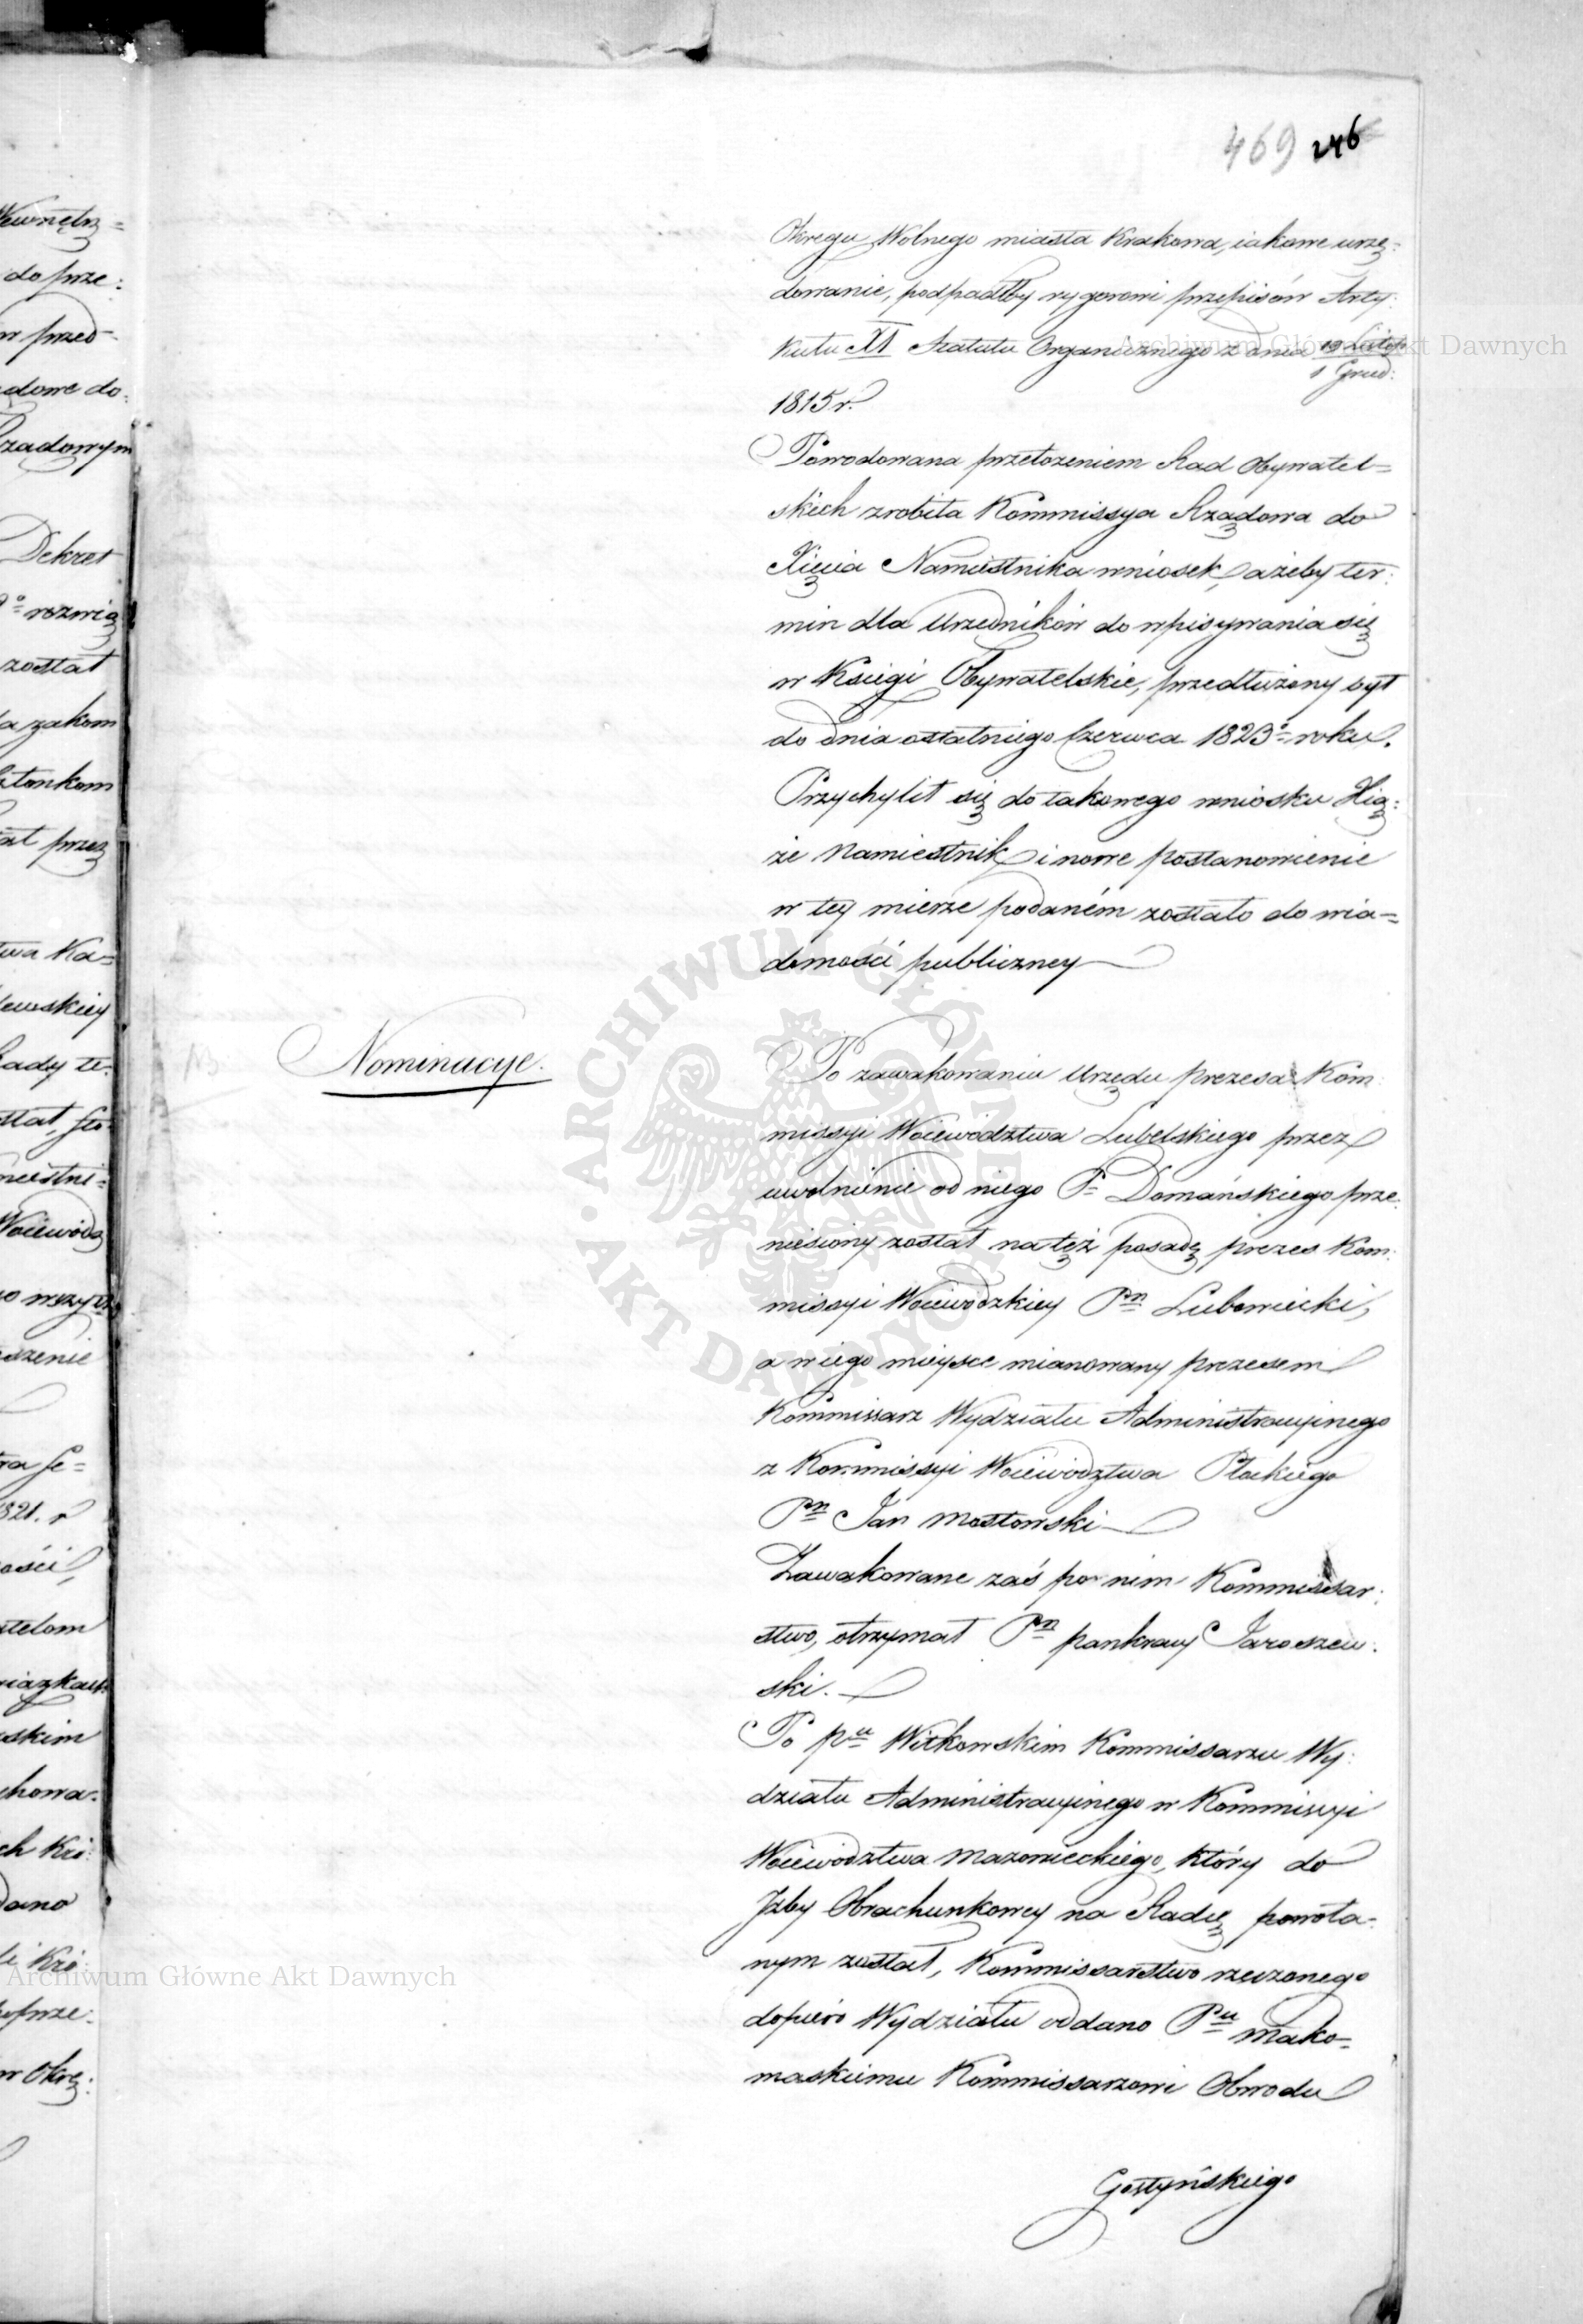 469 246
Okręgu Wolnego miasta Krakowa, iakowe urzę-
dowanie, podpadłby rygorowi przepisów Arty:
kułu XI Statutu Organicznego z dnia 19 Listop:
1 Grud:
1815 r.
Powodowana przełożeniem Rad Obywatel=
skich zrobiła Kommissya Rządowa do
Xięcia Namiestnika wniosek, ażeby ter:
min dla Urzędników do wpisywania się
w Księgi Obywatelskie, przedłużony był
do dnia ostatniego Czerwca 1823o roku.
Przychylił się do takowego wniosku Xią:
że Namiestnik i nowe postanowienie
w tey mierze podaném zostało do wia=
domości publiczney
Nominacye.
Po zawakowaniu Urzędu prezesa Kom:
missyi Woiewództwa Lubelskiego przez
uwolnienie od niego Pa Domańskiego prze:
niesiony został na też posadę prezes Kom:
missyi Woiewódzkiey Pn Lubowiecki,
a w iego mieysce mianowany prezesem
Kommissarz Wydziału Administracyinego
z Kommissyi Woiewództwa Płockiego
Pn Jan Mostowski
Zawakowane zaś po nim Kommissar:
stwo, otrzymał Pn Pankracy Jaroszew:
ski.
Po pu Witkowskim Kommissarzu Wy:
działu Administracyinego w Kommissyi
Woiewództwa Mazowieckiego, który do
Izby Obrachunkowey na Radcę powoła-
nym został, Kommissarstwo rzeczonego
dopiéro Wydziału oddano Pu Mako=
maskiemu Kommissarzowi Obwodu
Gostyńskiego
Wewnętrz=
do prze:
w przed-
dowe do:
Rządowym
Dekret
rozwią
został
zakom
członkom
przez
Ka=
ewskiey
Rady te:
stał,
miestni=
Woiewódz
wyży
szenie
1821. r
ości,
telom
wiązkach
skim
chowa:
ch Kró:
dano
Kró:
prze:
w Okrę:
Archiwum Główne Akt Dawnych
Archiwum Główne Akt Dawnych
ARCHIWUM GŁÓWNE AKT DAWNYCH